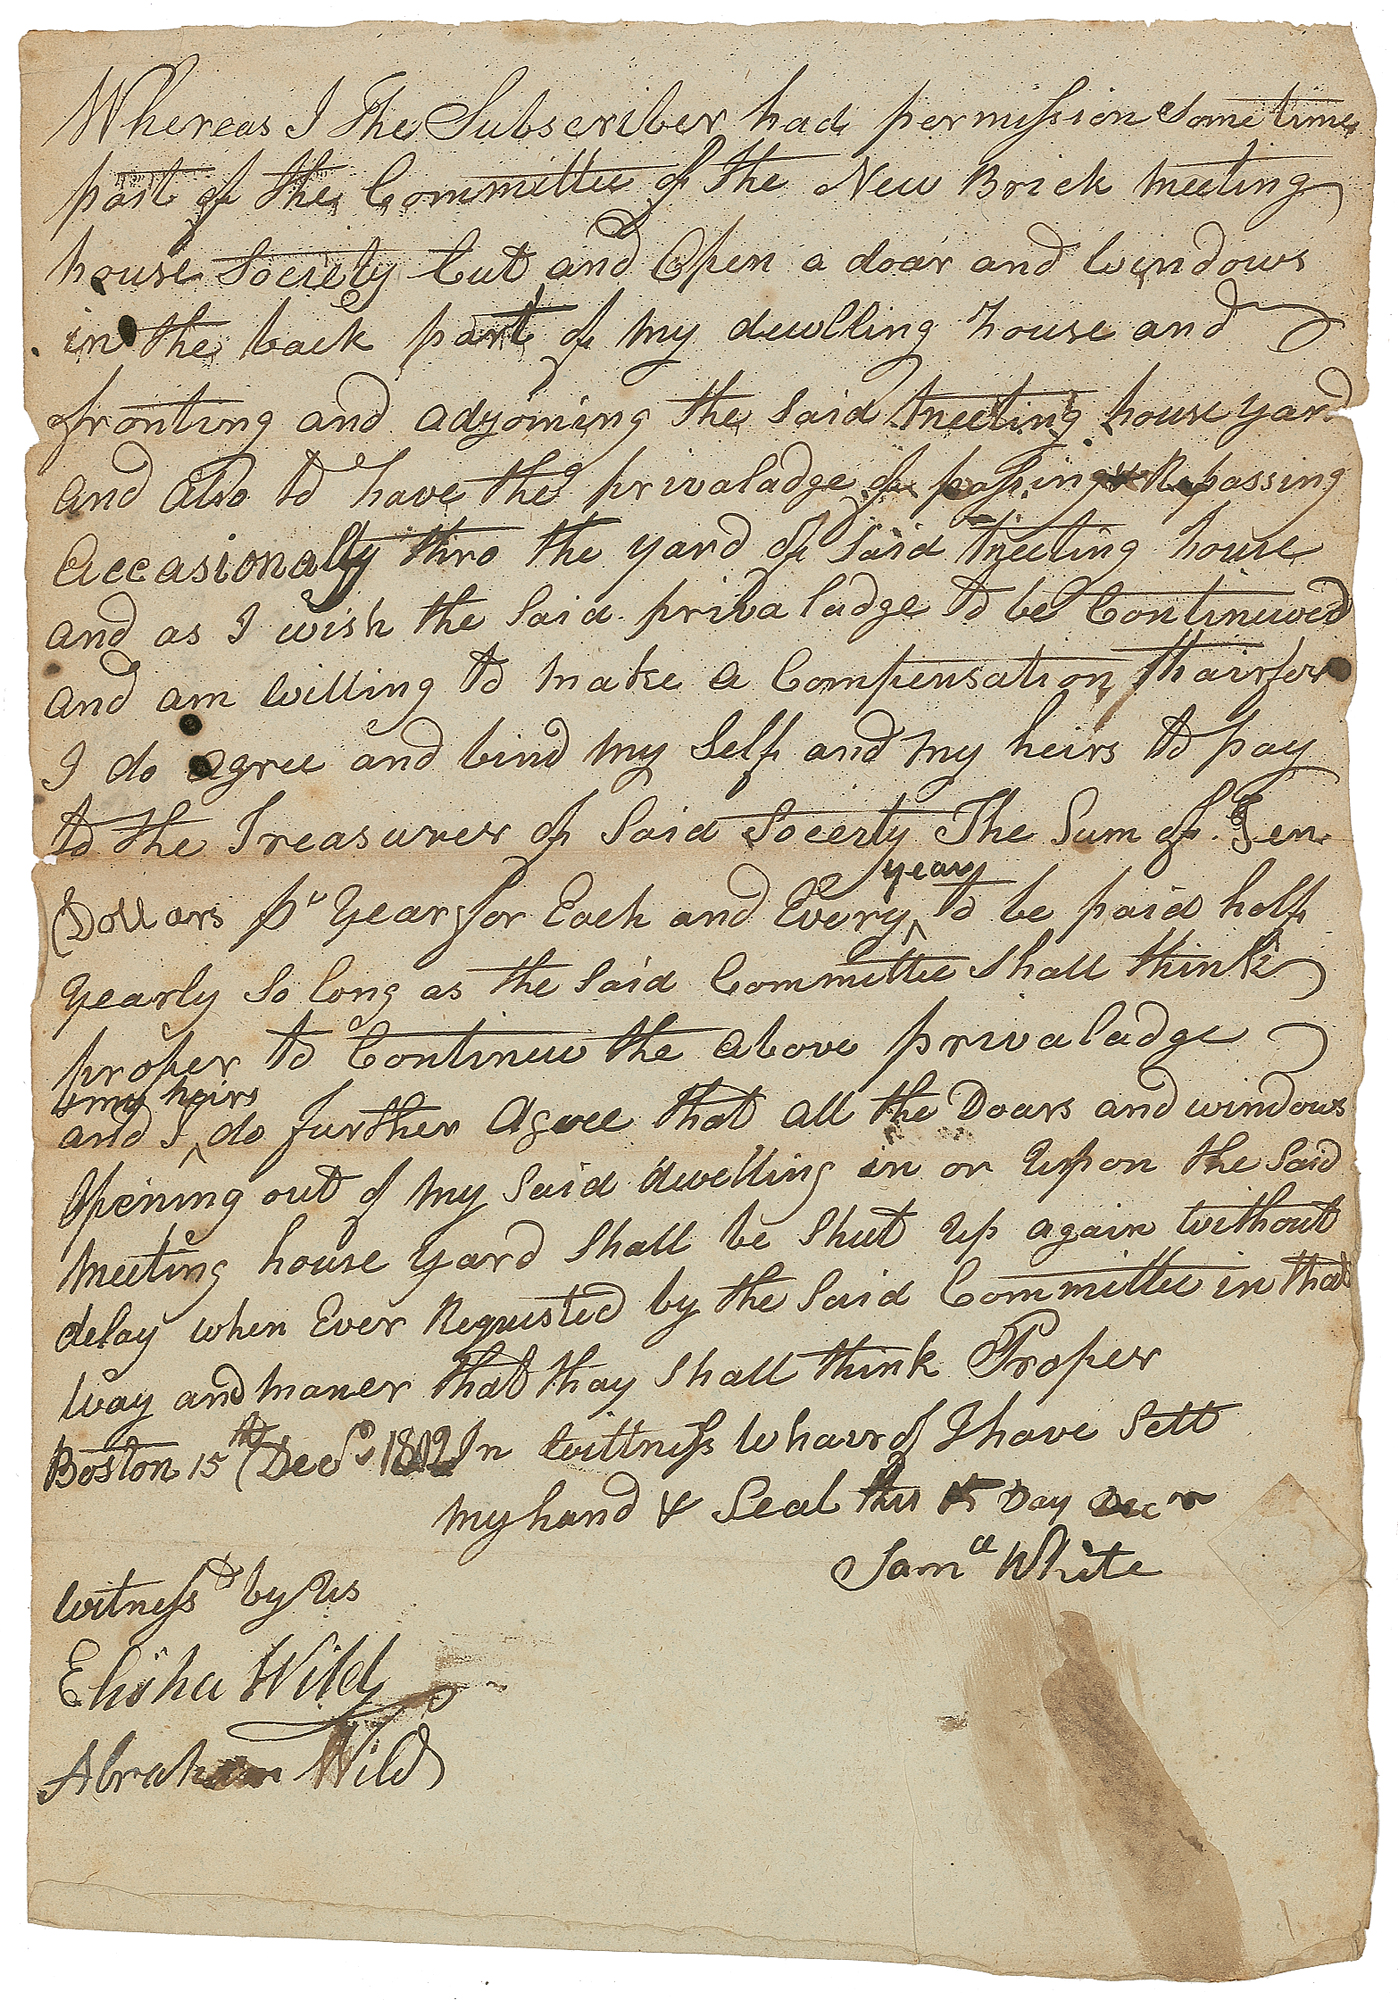 Whereas I The Subscriber had permission Sometime
past of the Committee of the New Brick meeting
house Society Cut and Open a doar and windows
in the back part of my dewlling house and
fronting and adjoining the said meeting house yard
and also to have the privaladge of passing & Repassing
Accasionally thro the yard of said meeting house
and as I wish the said privaladge to be Continuwed
and am willing to make a Compensation thairfor
I do agree and bind my self and my heirs to pay
to the Treasurer of said Socerty The Sum of Ten
Dollars pr Year for Each and Every year to be paid half
yearly so long as the said Committee shall think
proper to Continew the above privaladge
and I & my heirs do further Agree that all the Doars and windows
Opening out of my said dwelling in or Upon the said
meeting house yard shall be shut up again without
delay when Ever Requsted by the said Committee in that
way and maner that thay shall think Proper
Boston 15th Decr 1802 In wittness whairof I have Sett
my hand & Seal this 15 Day Decm
Samll White
witnessd by Us
Elisha Wild
Abraham Wild